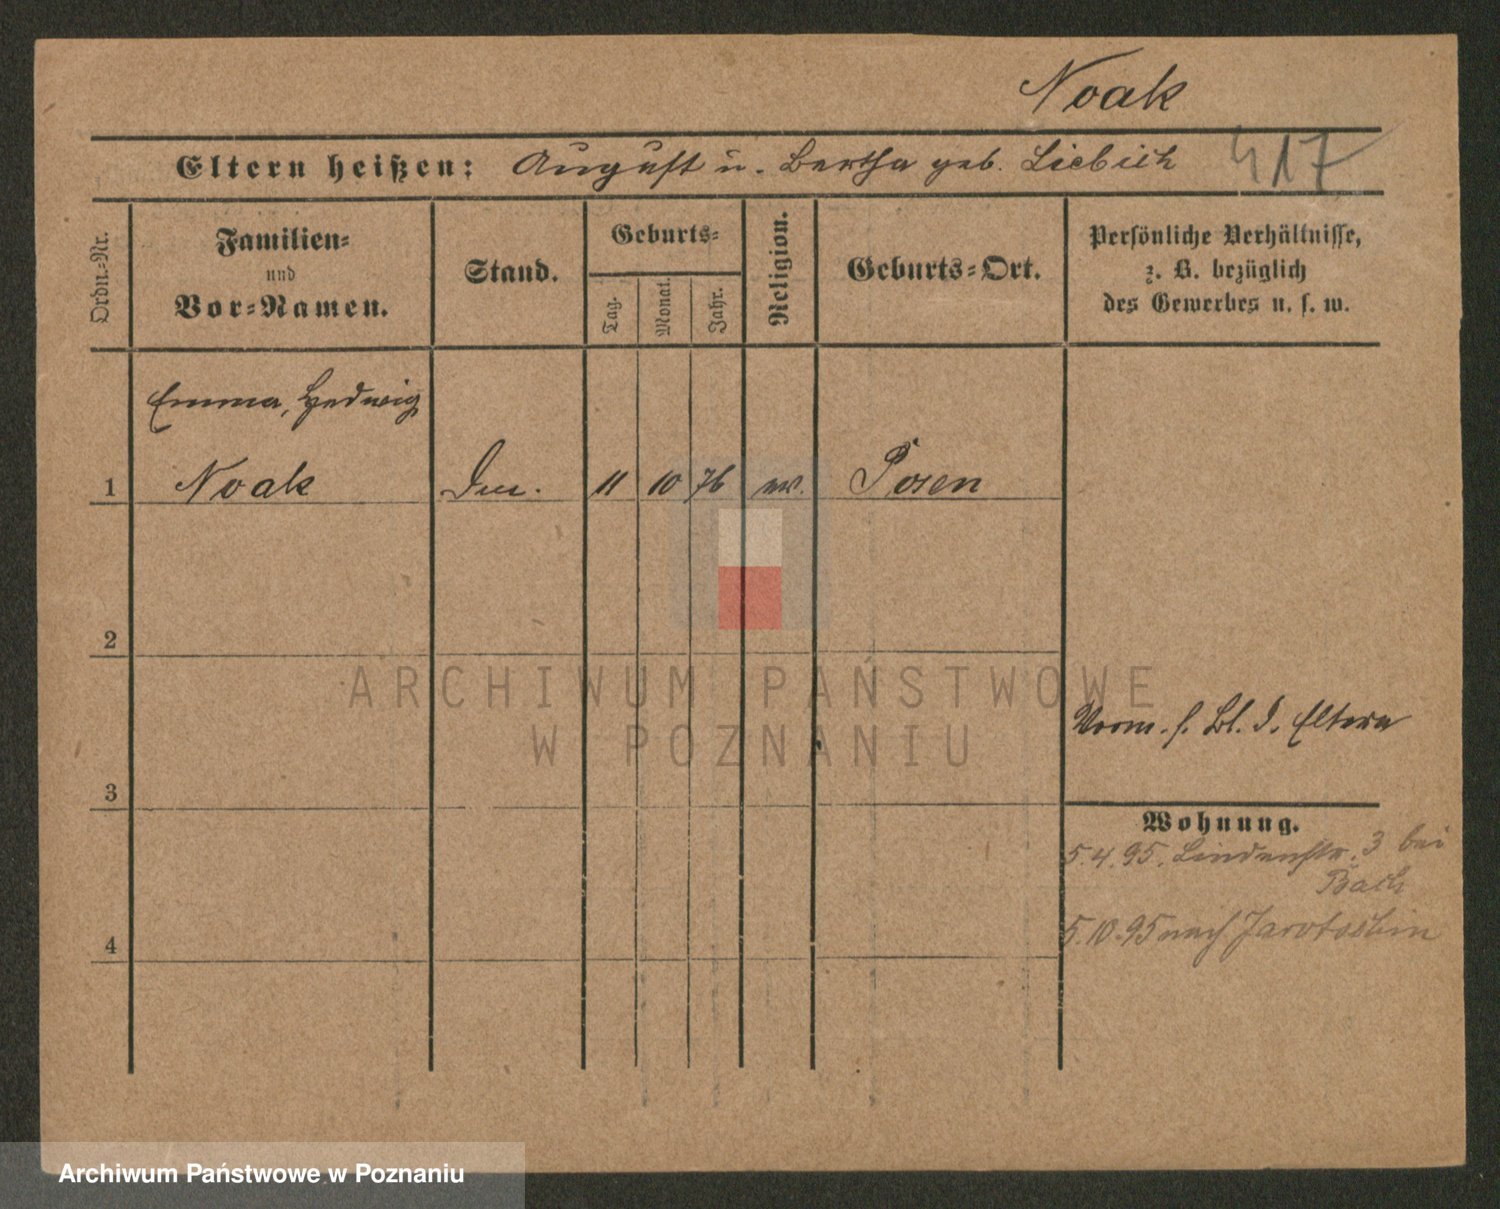 Noak
Eltern heißen: August u. Bertha geb. Liebich 417
Ordn.-Nr.
Familien-
und
Vor-Namen.
Stand.
Geburts-
Tag.
Monat.
Jahr.
Religion.
Geburts-Ort.
Persönliche Verhältnisse,
z. B. bezüglich
des Gewerbes u. s. w.
Emma, Hedwig
1 Noak 11 10 76 ev. Posen
2
ARCHIWUM PAŃSTWOWE
W POZNANIU
Verm. s. Bl. d. Eltern
3
Wohnung.
5.4.95. Lindenstr. 3 bei
Bach
5.10.95 nach Jarotschin
4
Archiwum Państwowe w Poznaniu